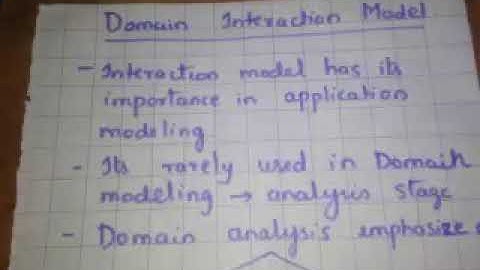 Domain Interaction Model
- Interaction model has its
importance in application
modeling
- Its rarely used in Domain
modeling → analysis stage
- Domain analysis emphasize